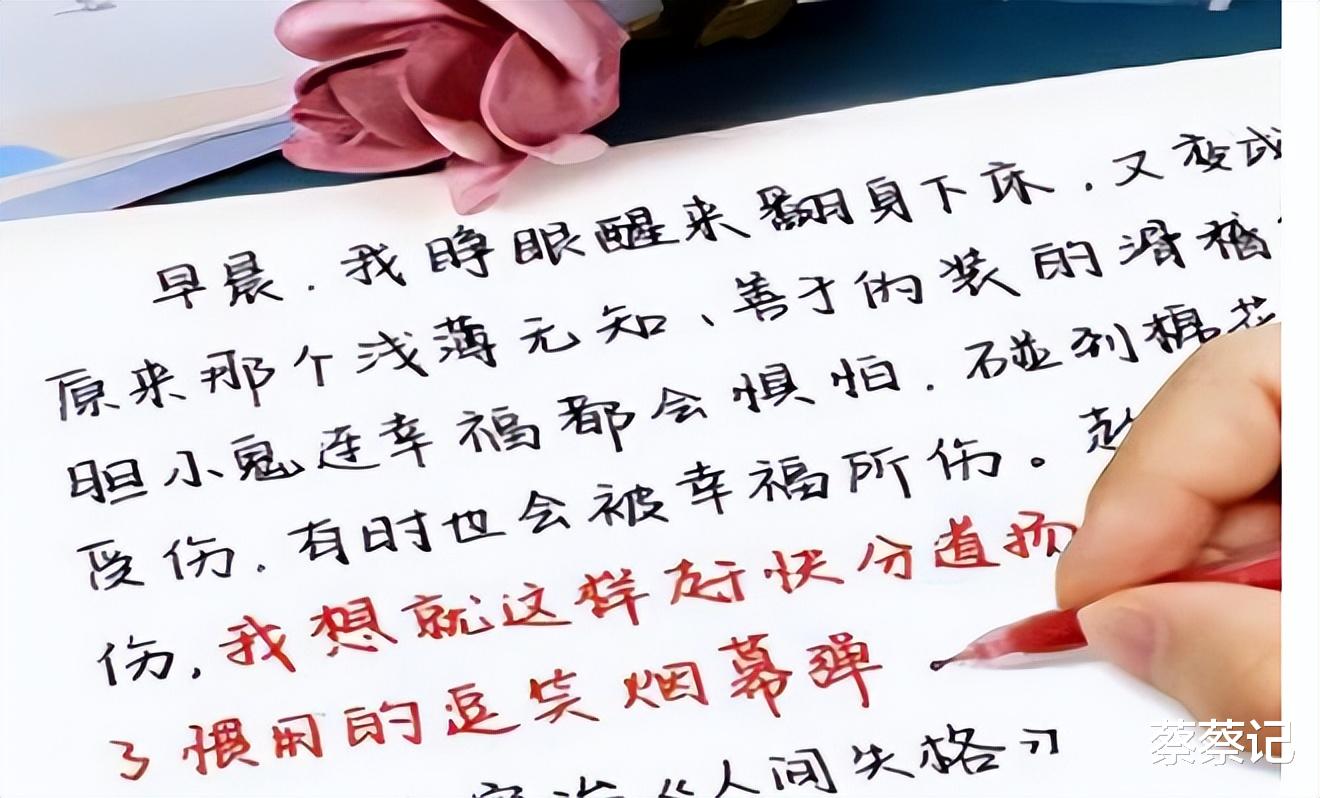 早晨.我睁眼醒来翻身下床.又变成
原来那个浅薄无知、善于伪装的滑稽
胆小鬼连幸福都会惧怕.碰到棉花
受伤.有时也会被幸福所伤。趁
伤,我想就这样赶快分道扬
了惯用的逗笑烟幕弹
宰治《人间失格》
蔡蔡记